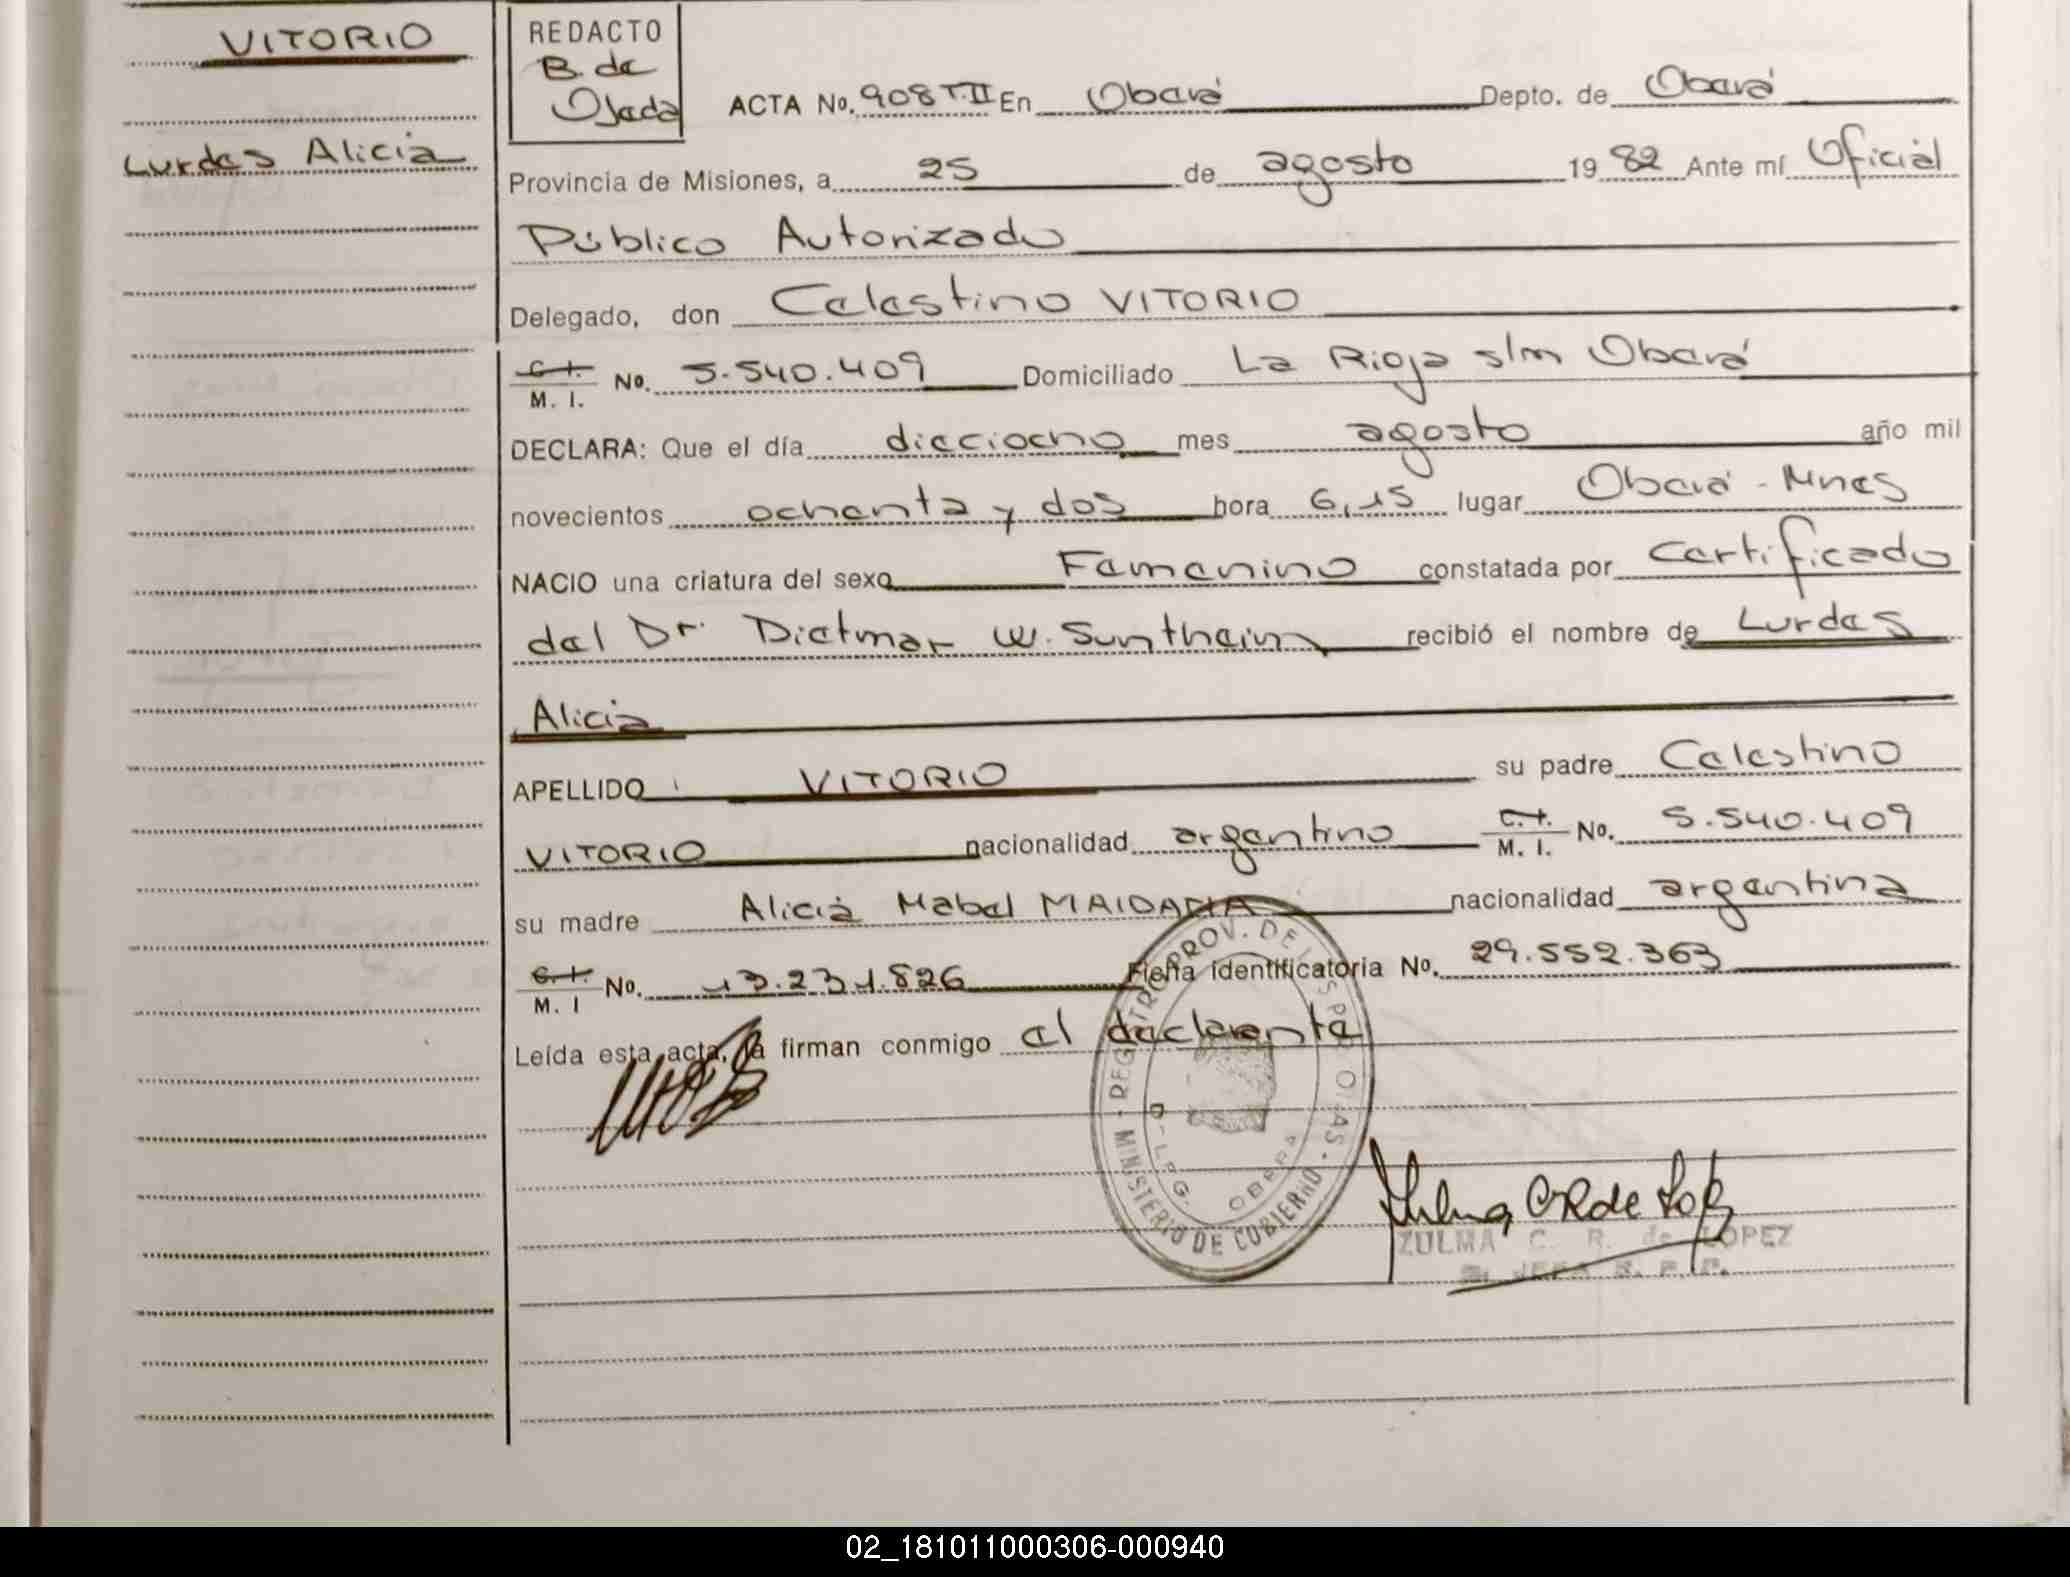 VITORIO
Lurdes Alicia
REDACTO
B. de
Ojeda
ACTA No. 908 T.II En Oberá Depto. de Oberá
Provincia de Misiones, a 25 de agosto 19 82 Ante mí Oficial
Público Autorizado
Delegado, don Celestino VITORIO
C.I. M. I. No. 5.540.409 Domiciliado La Rioja s/m Oberá
DECLARA: Que el día dieciocho mes agosto año mil
novecientos ochenta y dos hora 6,15 lugar Oberá - Mnes
NACIO una criatura del sexo Femenino constatada por Certificado
del Dr. Dietmar W. Sunthein recibió el nombre de Lurdes
Alicia
APELLIDO VITORIO su padre Celestino
VITORIO nacionalidad argentino C.I. M. I. No. 5.540.409
su madre Alicia Mabel MAIDANA nacionalidad argentina
C.I. M. I No. 13.231.826 Ficha identificatoria No. 29.552.363
Leída esta acta, la firman conmigo el declarante
REGISTRO PROV. DE LAS PERSONAS
MINISTERIO DE GOBIERNO
OBERA
Zulma C R de López
ZULMA C. R. de LOPEZ
JEFA R. P. P.
02_181011000306-000940